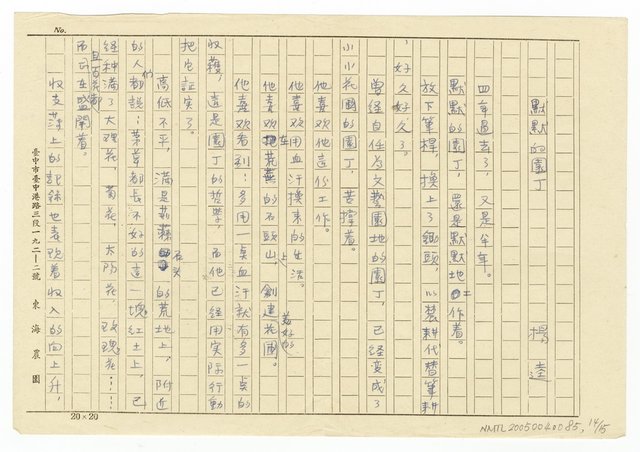 No.
默默的園丁
楊逵
四年過去了，又是半年。
默默的園丁，還是默默地工作着。
放下筆桿，換上了鋤頭，以農耕代替筆耕
，好久好久了。
曾经自任为文藝園地的園丁，已经变成了
小小花園的園丁，苦撐着。
他喜欢他這份工作。
他喜欢用血汗換來的生活。
他喜欢在荒蕪的石頭山上，創建美好的花圃。
他喜欢看到：多用一桌血汗就有多一桌的
收穫，這是園丁的哲學，而他已经用实际行動
把它証实了。
高低不平，滿是石头的荒地上，附近
的人们都說：茅草都長不好的這一塊紅土上，已
经种滿了大理花，菊花，太陽花，玫瑰花……
而且在盛開着。
收支簿上的記錄也表現着收入的向上升，
臺中市臺中港路三段一九二—二號　東海農園
20×20
NMTL20050040085, 14/15